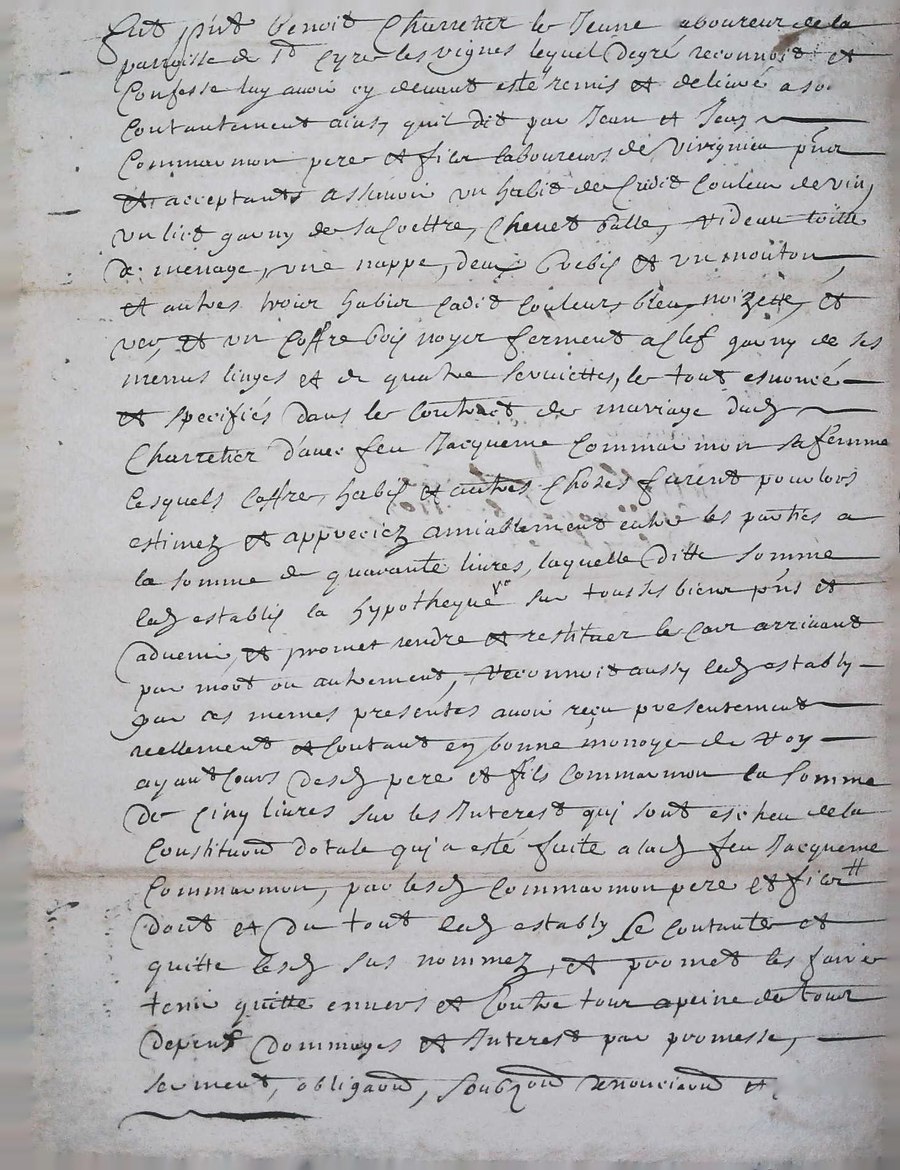 fut pnt Benoit Charretier le Jeune aboureur de la
parroisse de St Cyre les vignes lequel de gré reconnoist et
Confesse luy avoir cy devant esté remis et delivré a so
Contantement ainsy quil dit par Jean et Jean
Commarmon pere et fils laboureurs de Virignieu pnts
et acceptants assavoir un habit de Cadit Couleur de vin,
un lict garny de sa Coettre, Chevet balle, rideau toille
de menage, une nappe, deux Brebis et un mouton,
et autres trois habis Cadit Couleurs bleu, noizette, et
ver, et un Coffre bois noyer ferment a Clef garny de ses
menus linges et de quatre serviettes, le tout enoncé
et specifiés dans le Contract de marriage dud
Charretier d'avec feu Jacqueme Commarmon sa femme
lesquels Coffre, habis et autres Choses furent pour lors
estimez et appreciez amiablement entre les parties a
la somme de quarante livres, laquelle ditte somme
led establis la hypotheque sur tous ses biens pnts et
advenir, et promet rendre et restituer le Cas arrivant
par mort ou autrement, Reconnoit aussy led establÿ
par ces memes presentes avoir reçu presentement
reellement et Contant en bonne monoye de Roy
ayant Cours desd pere et fils Commarmon la Somme
de Cinq livres sur les Interest qui sont escheu de la
Constituon dotale qui a esté faite a lad feu Jacqueme
Commarmon, par lesd Commarmon pere et fils
Dont et Du tout led establÿ se Contante et
quitte lesd sus nommez, et promet les faire
tenir quitte envers et Contre tous a peine de tous
depens Dommages et Interest par promesse,
serment, obligaon, soubzon renonciaon et